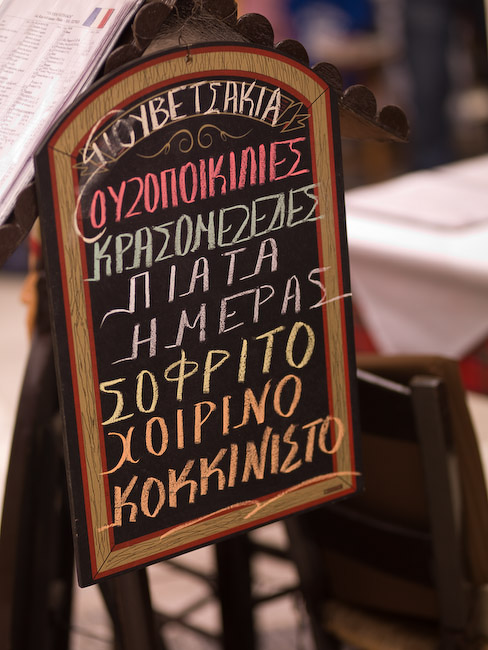 ΓΙΟΥΒΕΤΣΑΚΙΑ
ΟΥΖΟΠΟΙΚΙΛΙΕΣ
ΚΡΑΣΟΜΕΖΕΔΕΣ
ΠΙΑΤΑ
ΗΜΕΡΑΣ
ΣΟΦΡΙΤΟ
ΧΟΙΡΙΝΟ
ΚΟΚΚΙΝΙΣΤΟ